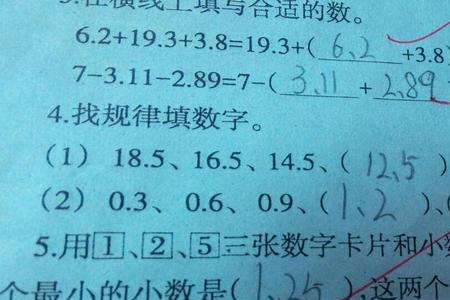 3.在横线上填写合适的数。
6.2+19.3+3.8=19.3+( 6.2 +3.8)
7-3.11-2.89=7-( 3.11 + 2.89
4.找规律填数字。
(1) 18.5、16.5、14.5、( 12.5 )
(2) 0.3、0.6、0.9、( 1.2 )、(
5.用1、2、5三张数字卡片和小数
个最小的小数是( 1.25 ),这两个